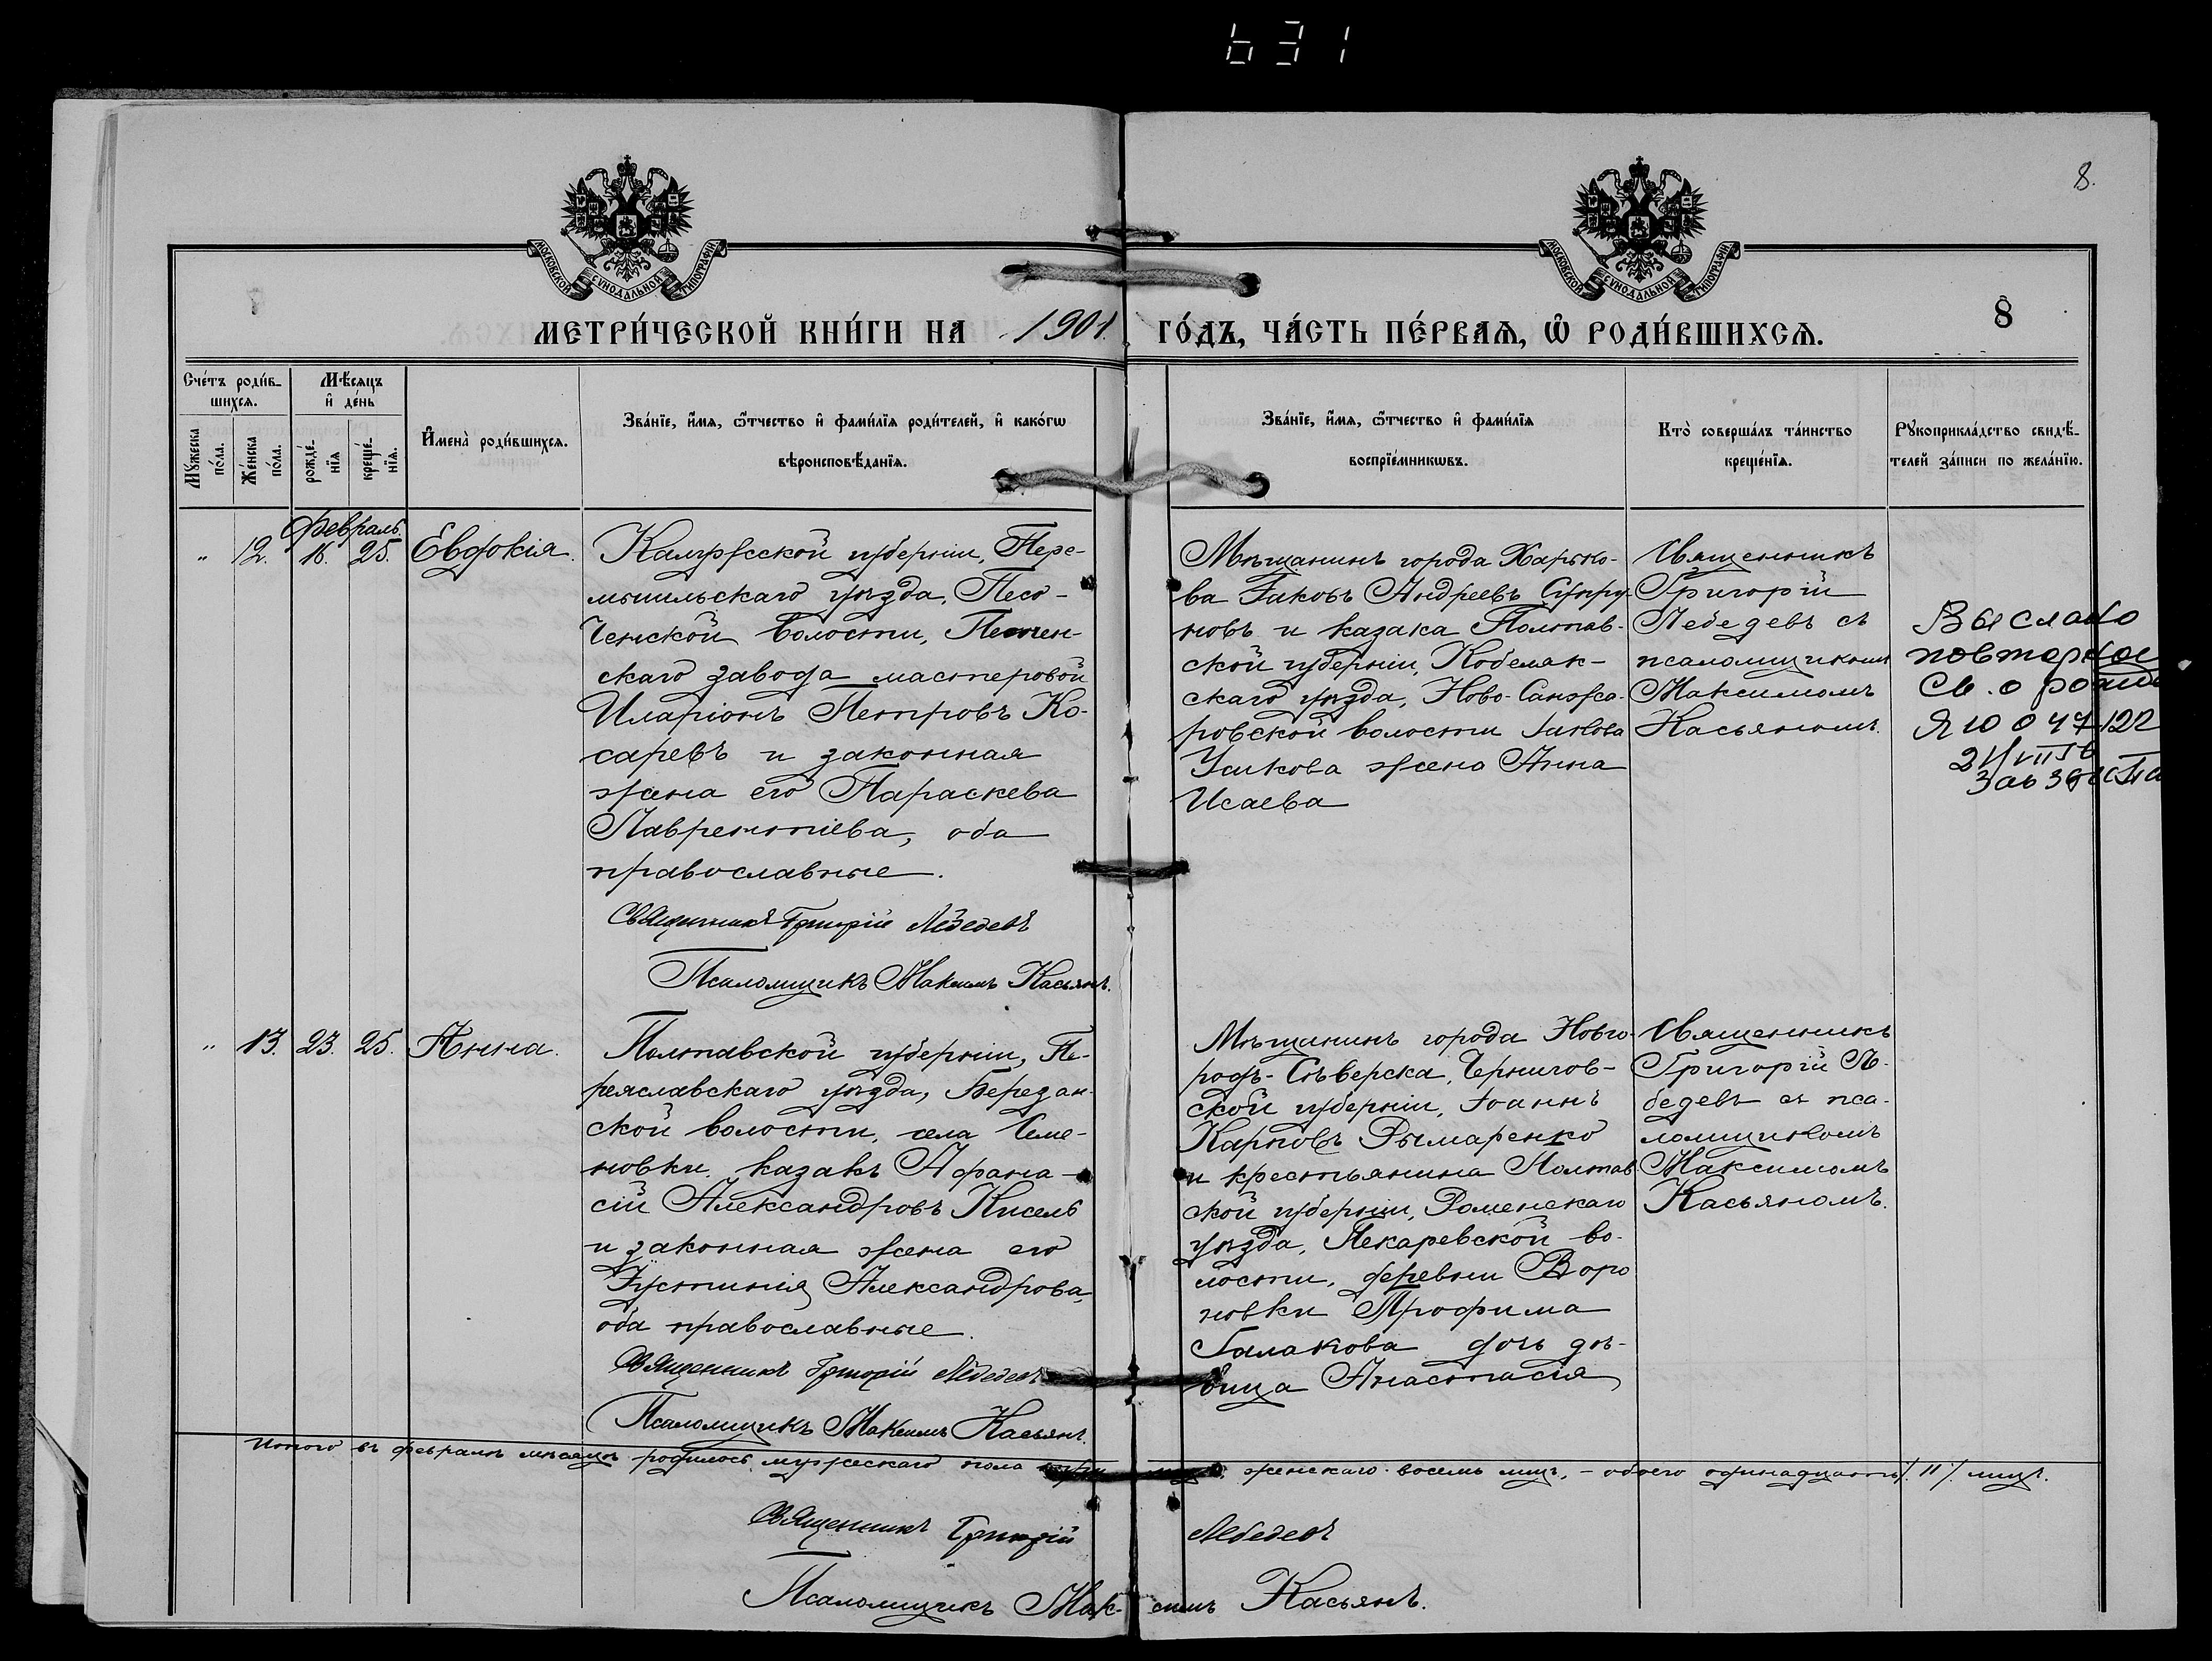 631
8.
МОСКОВСКОЙ СѴНОДАЛЬНОЙ ТИПОГРАФІИ
МОСКОВСКОЙ СѴНОДАЛЬНОЙ ТИПОГРАФІИ
МЕТРИ́ЧЕСКОЙ КНИ́ГИ НА 1901. ГО́ДЪ, ЧА́СТЬ ПЕ́РВАЯ, Ѿ РОДИ́ВШИХСѦ.
8
Сче́тъ роди́в-
шихсѧ.
Мѣ́сяцъ
и҆ де́нь
Мꙋ́жеска
по́ла.
Же́нска
по́ла.
рожде́-
нїѧ
креще́-
нїѧ.
И҆мена̀ роди́вшихсѧ.
Зва́нїе, и҆́мѧ, ѻ҆́тчество и҆ фами́лїѧ роди́телей, и҆ како́гѡ
вѣроисповѣ́данїѧ.
Зва́нїе, и҆́мѧ, ѻ҆́тчество и҆ фами́лїѧ
воспрїе́мникѡвъ.
Кто̀ соверша́лъ та́инство
креще́нїѧ.
Рꙋкоприкла́дство свидѣ́-
телей за́писи по жела́нїю.
Февраль.
„ 12. 16. 25. Евдокія.
Калужской губерніи, Пере-
мышльскаго уѣзда, Песо-
ченской волости, Песочен-
скаго завода мастеровой
Иларіонъ Петровъ Ко-
саревъ и законная
жена его Параскева
Лаврентіева, оба
православные.
Священникъ Григорій Лебедевъ
Псаломщикъ Максимъ Касьянъ.
Мѣщанинъ города Харько-
ва Іаковъ Андреевъ Супру-
новъ и казака Полтав-
ской губерніи, Кобеляк-
скаго уѣзда, Ново-Санжа-
ровской волости Іакова
Усикова жена Анна
Исаева
Священникъ
Григорій
Лебедевъ съ
псаломщикомъ
Максимомъ
Касьяномъ.
Выслано
повторное
св. о рожд
Я Ю 0 47122
21/VII 56
Зав Загса
„ 13. 23. 25. Анна.
Полтавской губерніи, Пе-
реяславскаго уѣзда, Березан-
ской волости, села Семе-
новки казакъ Афана-
сій Александровъ Кисель
и законная жена его
Іустинія Александрова,
оба православные.
Священникъ Григорій Лебедевъ
Псаломщикъ Максимъ Касьянъ.
Мѣщанинъ города Новго-
родъ-Сѣверска, Чернигов-
ской губерніи, Іоаннъ
Карповъ Рымаренко
и крестьянина Полтав-
ской губерніи, Роменскаго
уѣзда, Пекаревской во-
лости, деревни Воро
новки Трофима
Галакова дочь дѣ-
вица Анастасія
Священникъ
Григорій Ле-
бедевъ съ пса-
ломщикомъ
Максимомъ
Касьяномъ.
Итого въ февралѣ мѣсяцѣ родилось мужескаго пола женскаго восемь лицъ, - обоего одинадцать /.11/. лицъ.
Священникъ Григорій Лебедевъ
Псаломщикъ Максимъ Касьянъ.